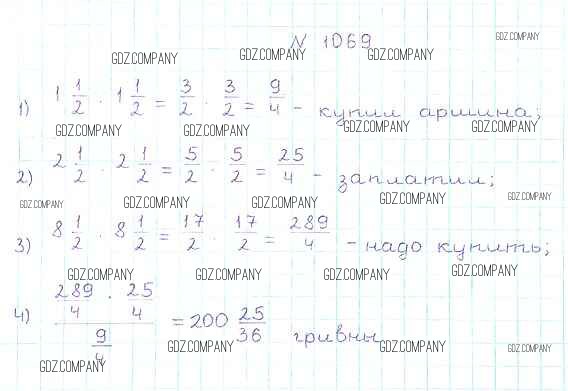 N 1069
GDZ.COMPANY GDZ.COMPANY GDZ.COMPANY GDZ.COMPANY
1) 1 1/2 · 1 1/2 = 3/2 · 3/2 = 9/4 - купил аршина;
GDZ.COMPANY GDZ.COMPANY GDZ.COMPANY GDZ.COMPANY
2) 2 1/2 · 2 1/2 = 5/2 · 5/2 = 25/4 - заплатил;
GDZ.COMPANY GDZ.COMPANY GDZ.COMPANY GDZ.COMPANY
3) 8 1/2 · 8 1/2 = 17/2 · 17/2 = 289/4 - надо купить;
GDZ.COMPANY GDZ.COMPANY GDZ.COMPANY GDZ.COMPANY
4) (289/4 · 25/4) / (9/4) = 200 25/36 гривны
GDZ.COMPANY GDZ.COMPANY GDZ.COMPANY GDZ.COMPANY